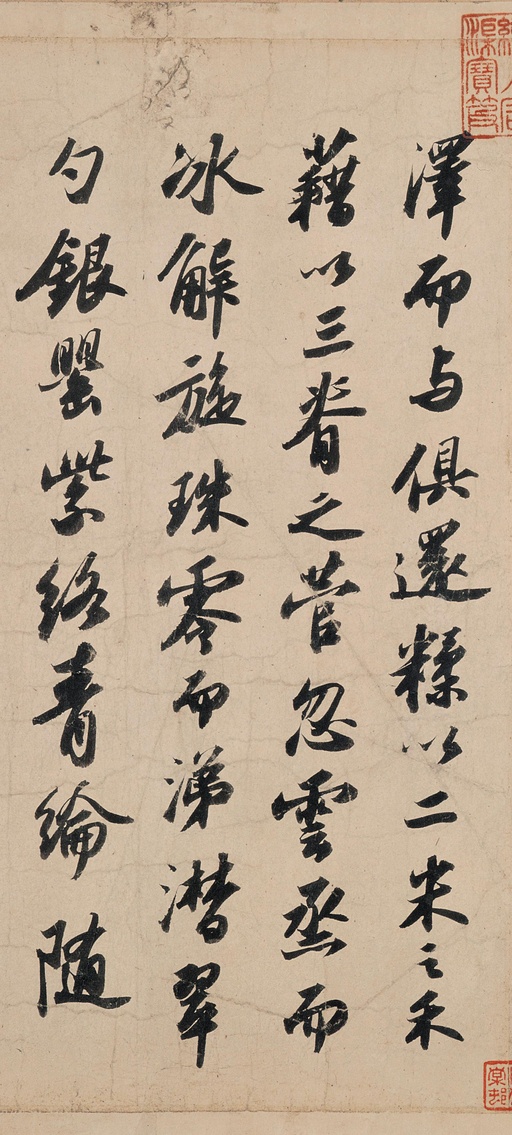 澤而与俱還糅以二米之禾
藉以三脊之菅忽雲烝而
冰解旋珠零而涕潸翠
勺銀罌紫絡青綸随